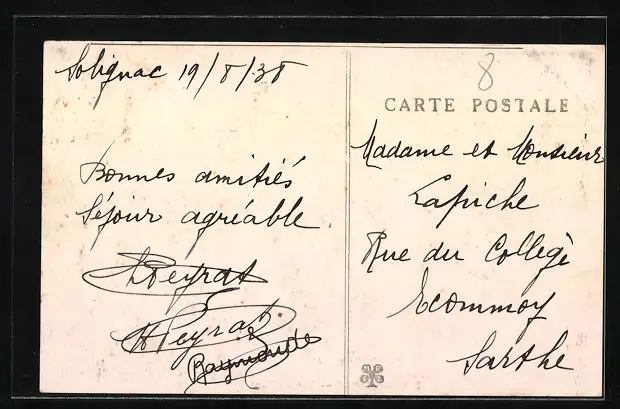 Solignac 19/8/38
Bonnes amitiés
Séjour agréable.
Peyrat
Peyrat
Raymonde
8
CARTE POSTALE
Madame et Monsieur
Lapiche
Rue du Collegè
Ecommoy
Sarthe